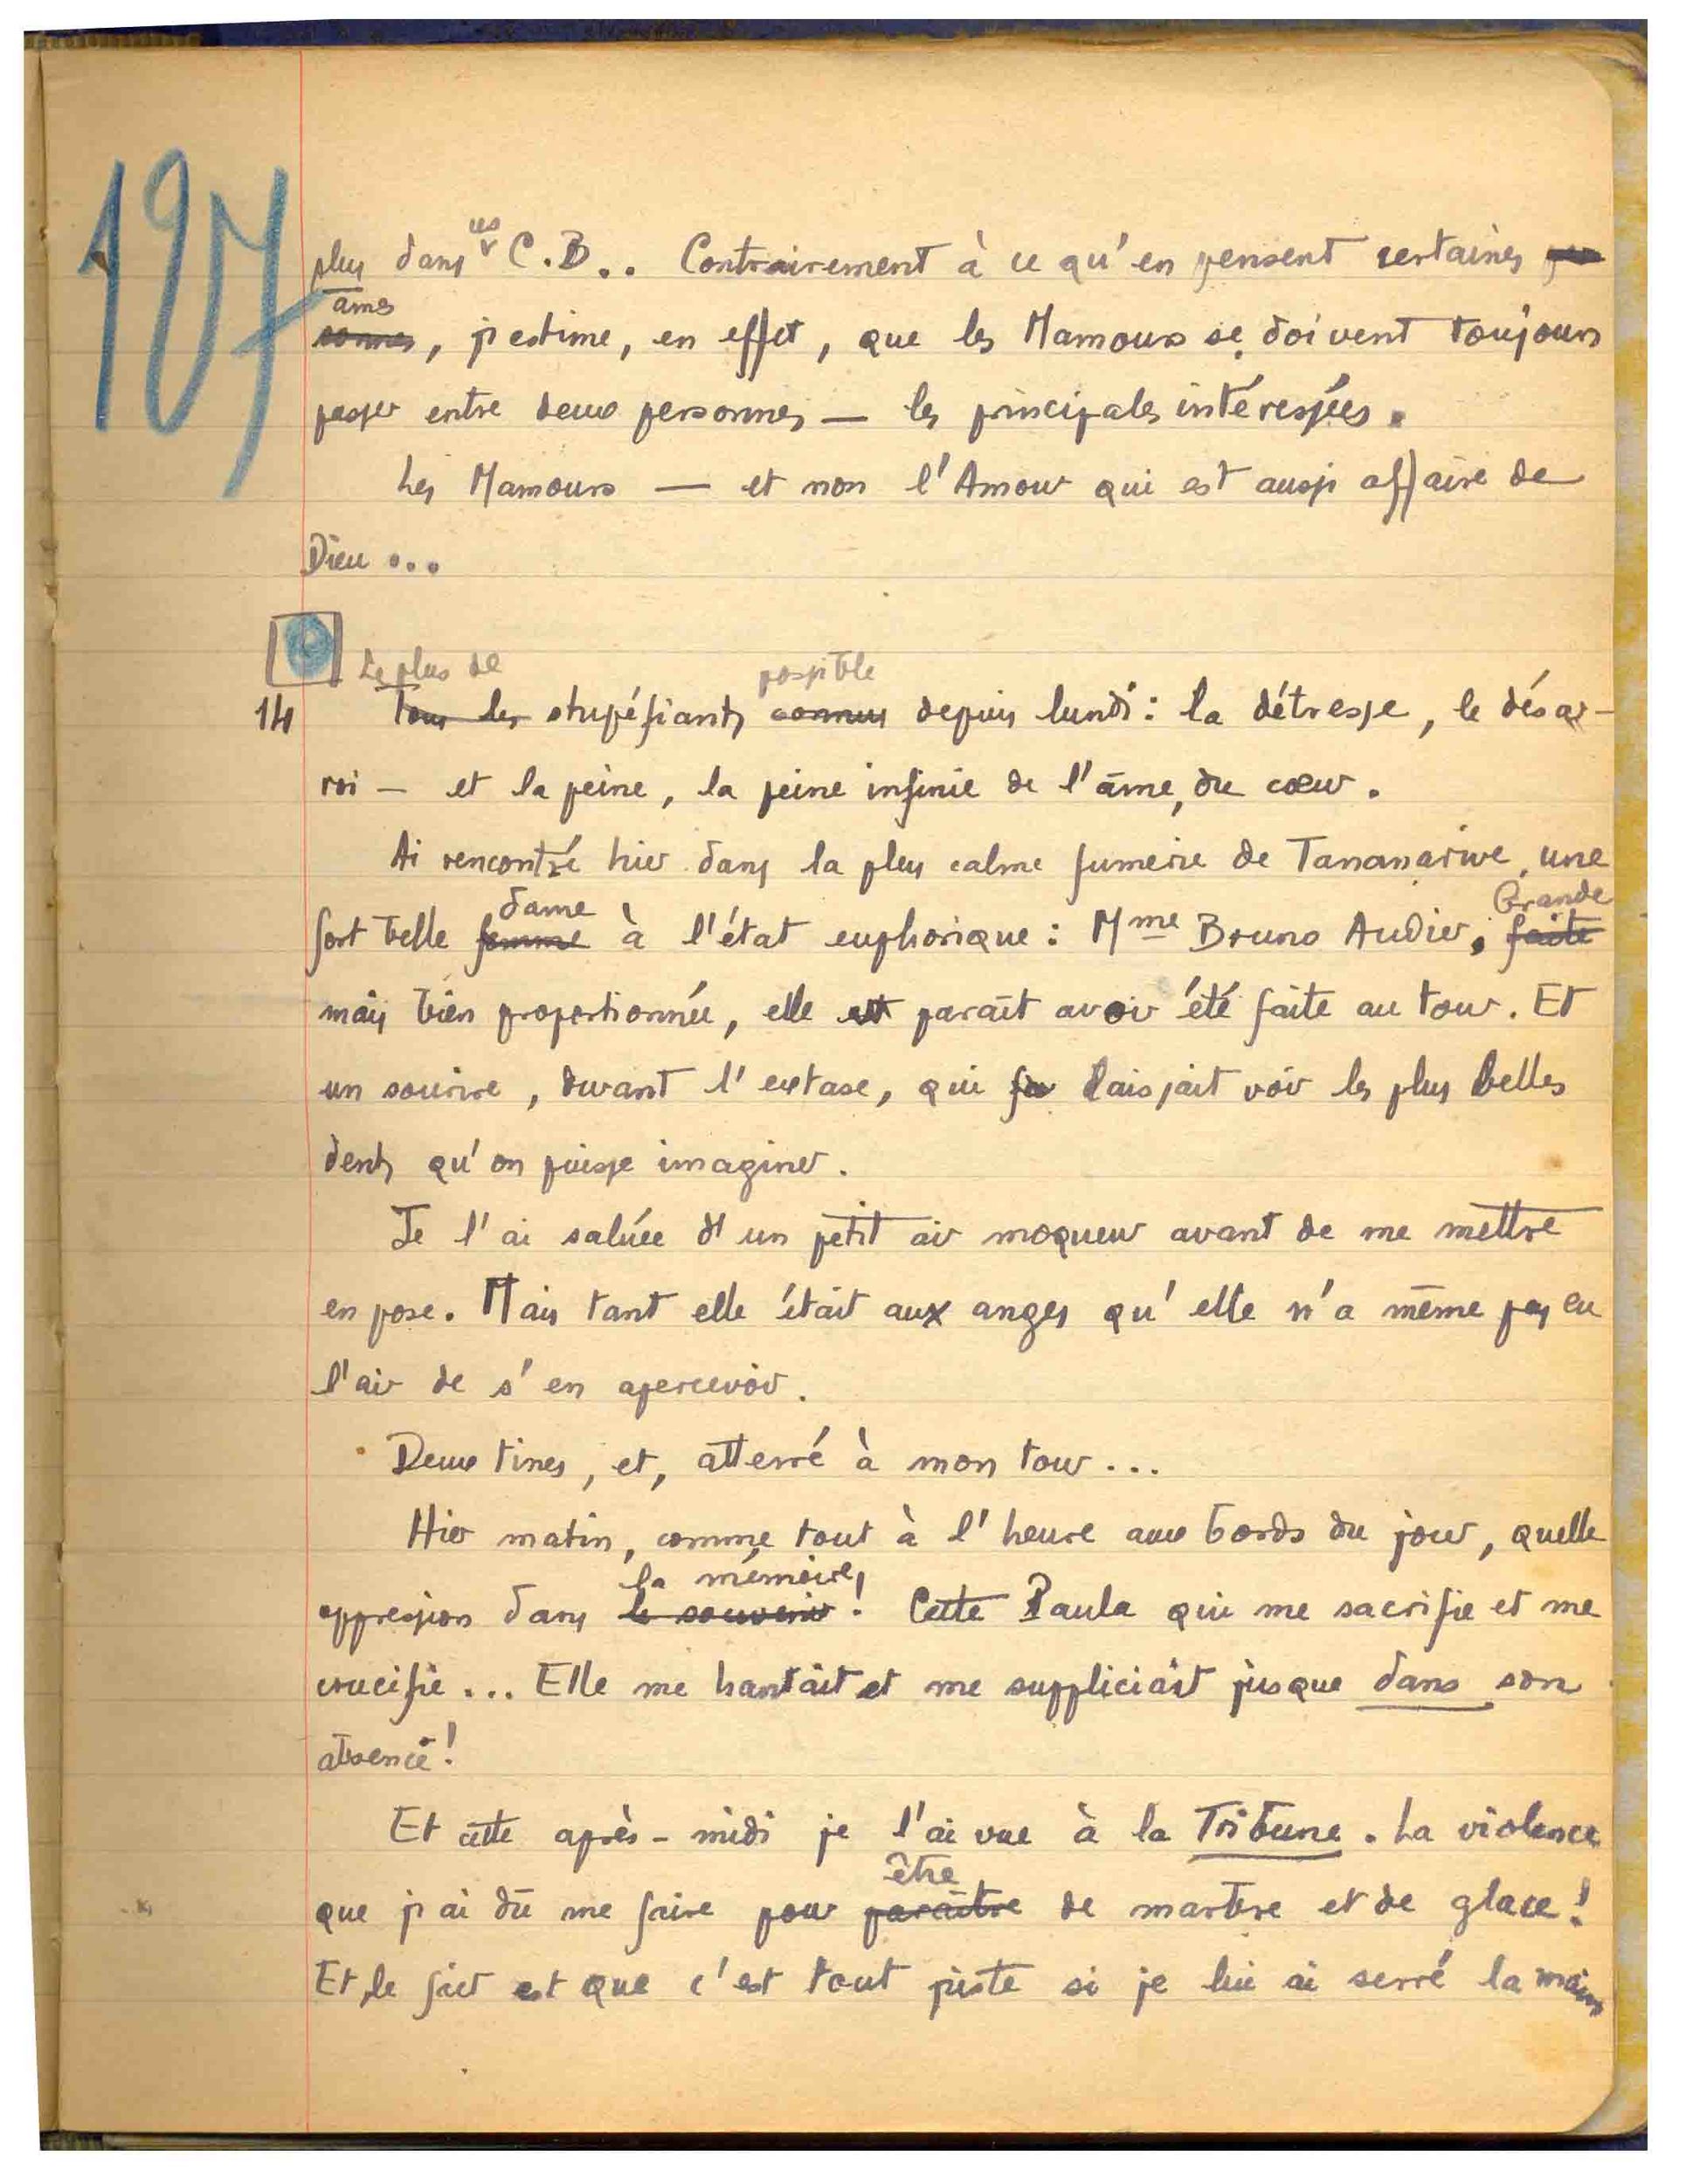 127
ces
plus dans C.B... Contrairement à ce qu'en pensent certaines per
âmes
sonnes, j'estime, en effet, que les Mamours se doivent toujours
passer entre deux personnes — les principales intéressées.
Les Mamours — et non l'Amour qui est aussi affaire de
Dieu...
Le plus de possible
14 Tous les stupéfiants connus depuis lundi : la détresse, le désar-
roi — et la peine, la peine infinie de l'âme, du cœur.
Ai rencontré hier dans la plus calme fumerie de Tananarive, une
dame Grande
fort belle femme à l'état euphorique : Mme Bruno Audier, faite
mais bien proportionnée, elle est paraît avoir été faite au tour. Et
un sourire, durant l'extase, qui laissait voir les plus belles
dents qu'on puisse imaginer.
Je l'ai saluée d'un petit air moqueur avant de me mettre
en pose. Mais tant elle était aux anges qu'elle n'a même pas eu
l'air de s'en apercevoir.
Deux tines, et, atterré à mon tour...
Hier matin, comme tout à l'heure aux bords du jour, quelle
la mémoire,
oppression dans le souvenir ! Cette Paula qui me sacrifie et me
crucifie... Elle me hantait et me suppliciait jusque dans son
absence !
Et cette après-midi je l'ai vue à la Tribune. La violence
être
que j'ai dû me faire pour paraître de marbre et de glace !
Et, le fait est que c'est tout juste si je lui ai serré la main